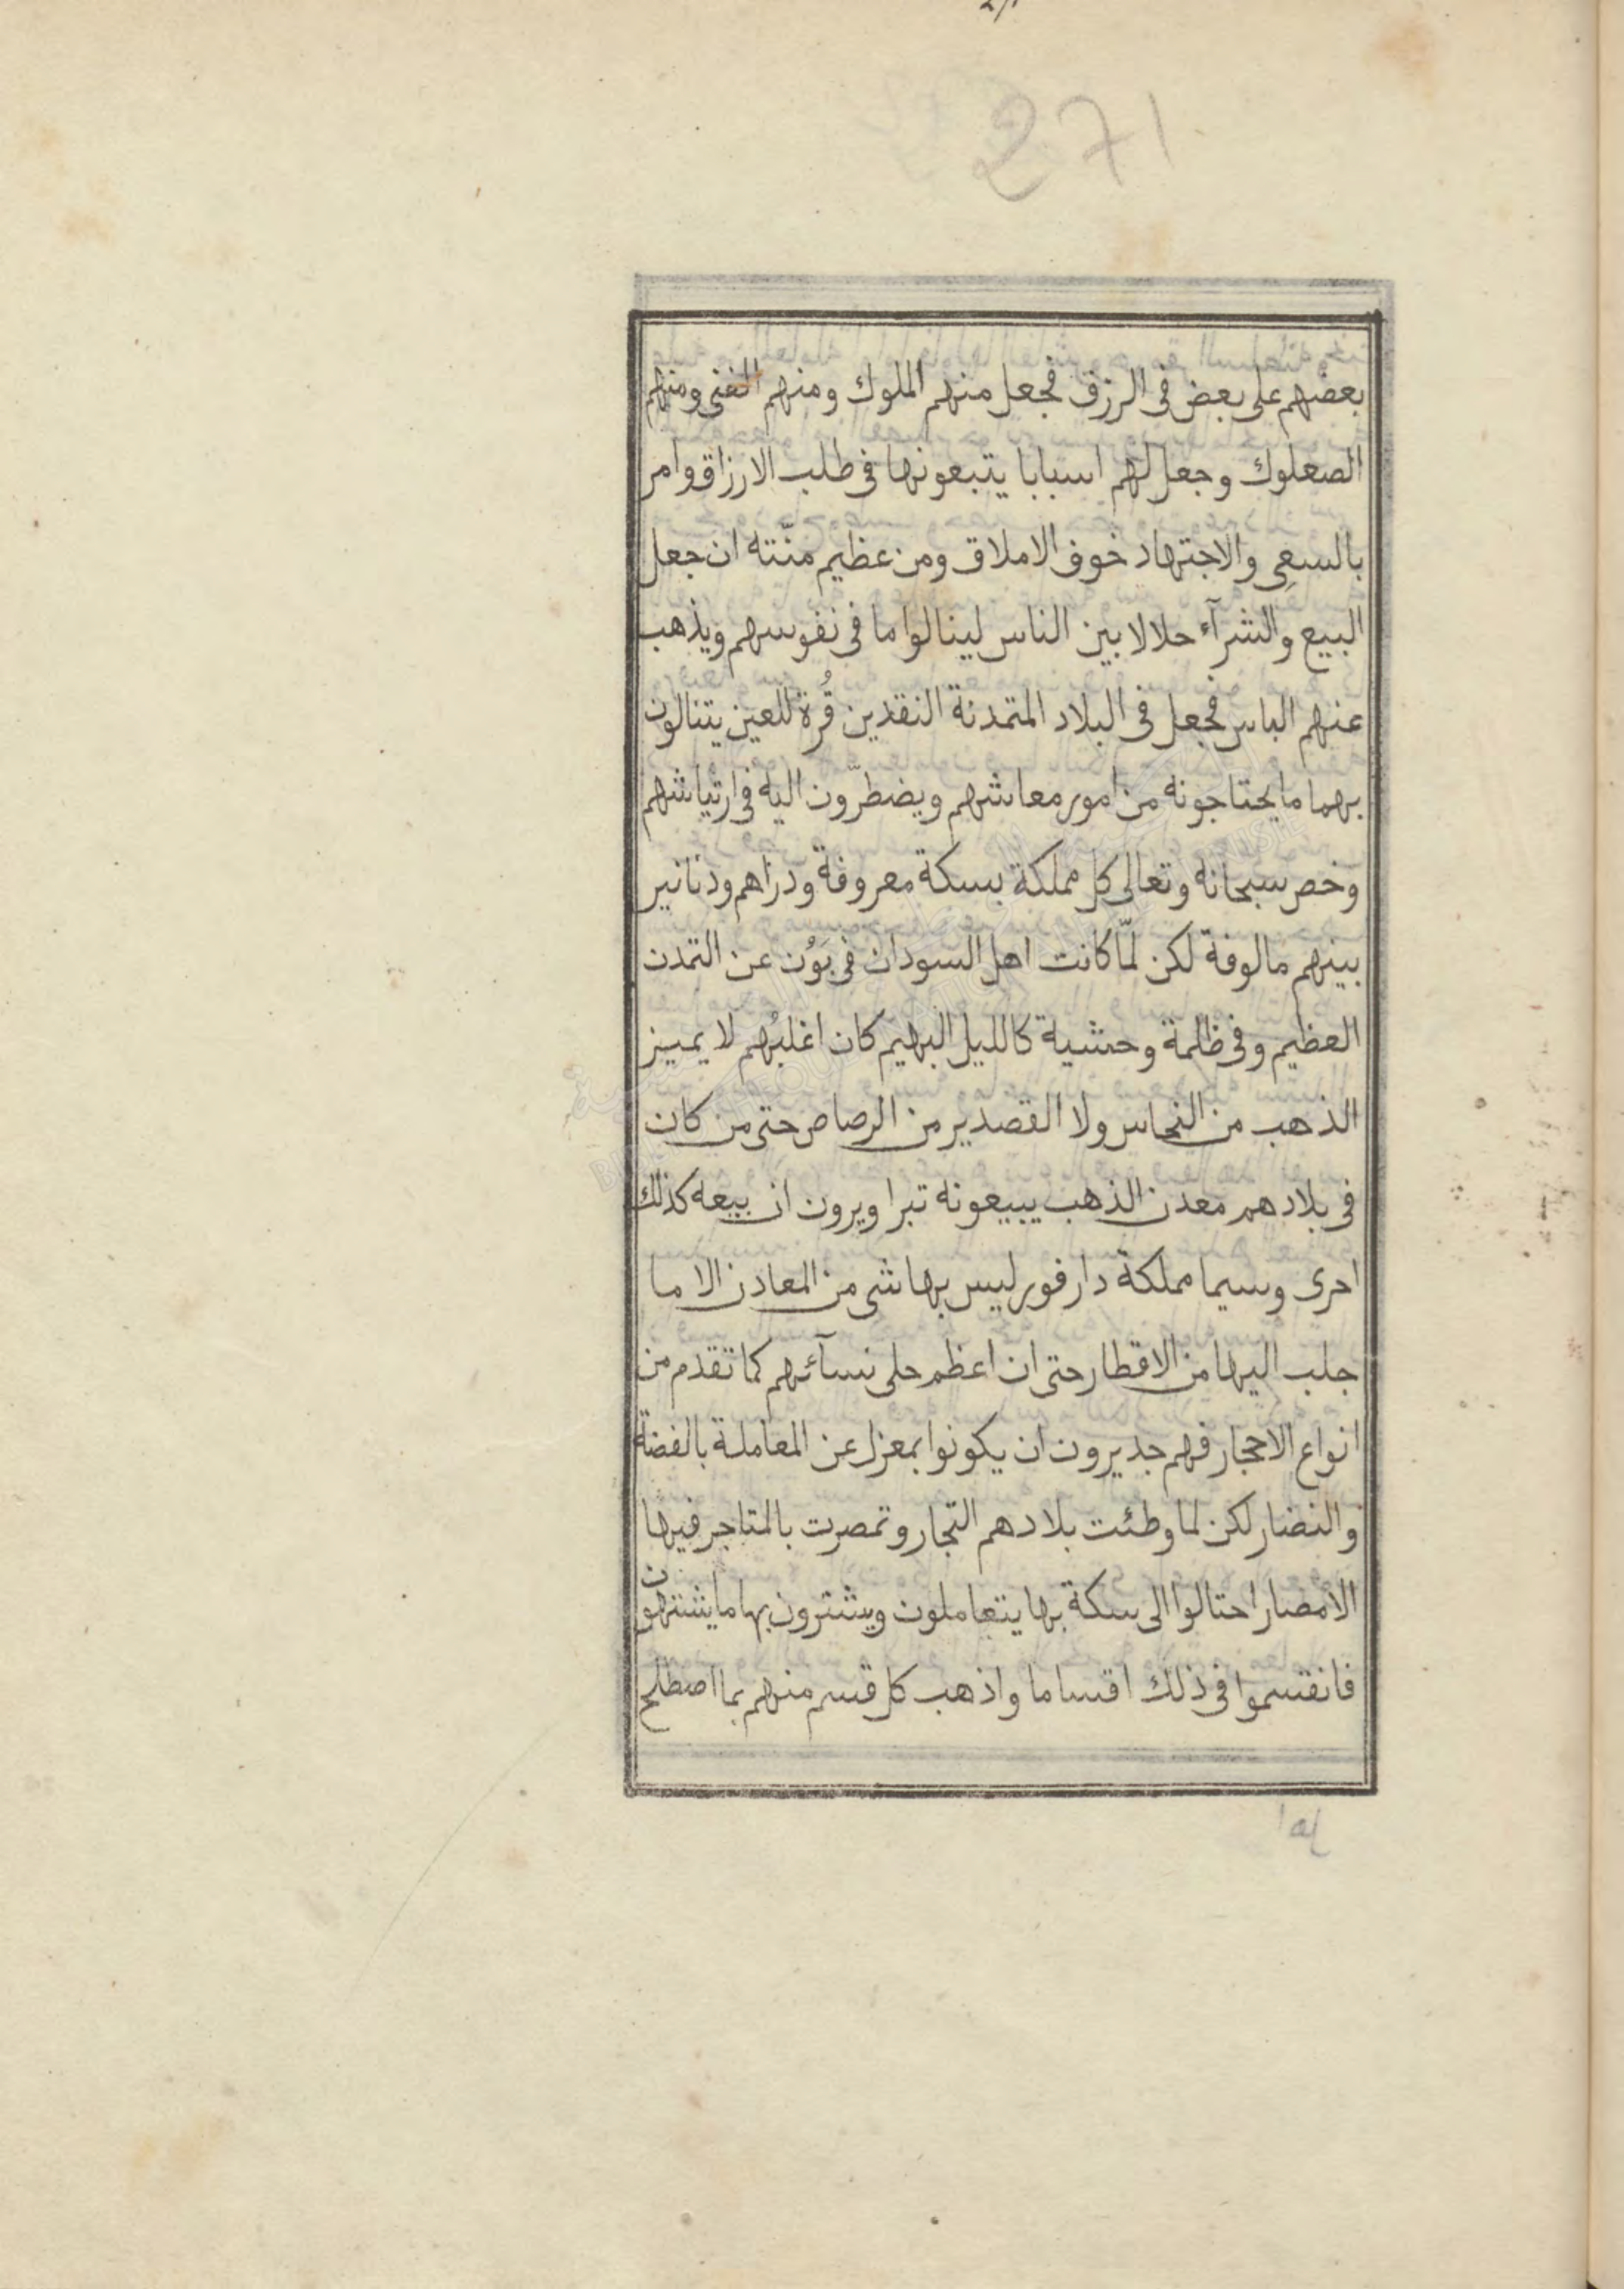 271
بعضهم على بعض فى الرزق فجعل منهم الملوك ومنهم الغنى ومنهم
الصعلوك وجعل لهم اسبابا يتبعونها فى طلب الارزاق وامر
بالسعى والاجتهاد خوف الاملاق ومن عظيم منّته ان جعل
البيع والشرآء حلالا بين الناس لينالوا ما فى نفوسهم ويذهب
عنهم الباس فجعل فى البلاد المتمدنة النقدين قُرة للعين يتنالون
بهما ما يحتاجونه من امور معاشهم ويضطرّون اليه فى ارتياشهم
وخص سبحانه وتعالى كل مملكة بسكة معروفة ودراهم ودنانير
بينهم مالوفة لكن لمّا كانت اهل السودان فى بَوْن عن التمدن
العظيم وفى ظلمة وحشية كالليل البهيم كان اغلبُهم لا يميز
الذهب من النحاس ولا القصدير من الرصاص حتى من كان
فى بلادهم معدن الذهب يبيعونه تبرا ويرون ان بيعه كذلك
احرى وسيما مملكة دارفور ليس بها شى من المعادن الا ما
جلب اليها من الاقطار حتى ان اعظم حلى نسآئهم كما تقدم من
انواع الاحجار فهم جديرون ان يكونوا بمعزل عن المعاملة بالفضة
والنضار لكن لما وطئت بلادهم التجار وتمصرت بالمتاجر فيها
الامصار احتالوا الى سكة بها يتعاملون ويشترون بها ما يشتهون
فانقسموا فى ذلك اقساما واذهب كل قسم منهم بما اصطلح